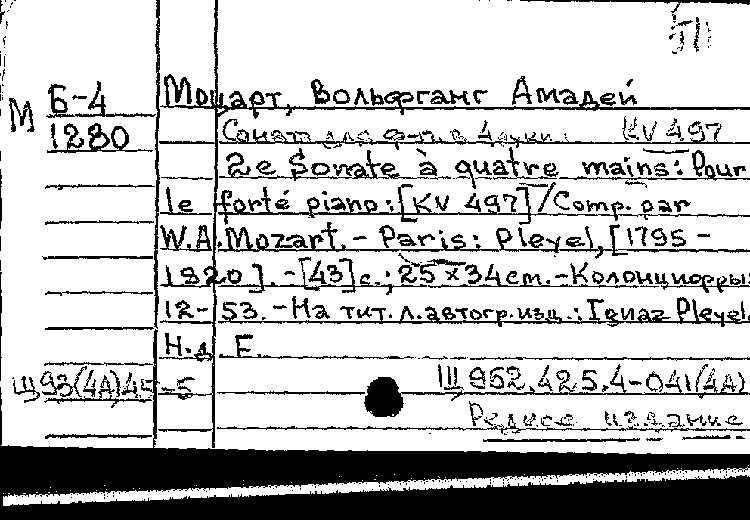 51
М Б-4 Моцарт, Вольфганг Амадей
1280 Соната для ф-п. в 4 руки. KV 497
2e Sonate à quatre mains: Pour
le forté piano: [KV 497]/Comp. par
W.A. Mozart. – Paris: Pleyel, [1795 –
1820]. – [43] с.; 25 x 34 cm. – Колонцифры:
12 – 53. – На тит. л. автогр. изд.: Ignaz Pleyel.
Н. д. F.
Щ93(4А)45-5 Щ 952.425.4-041(4А)
Редкое издание